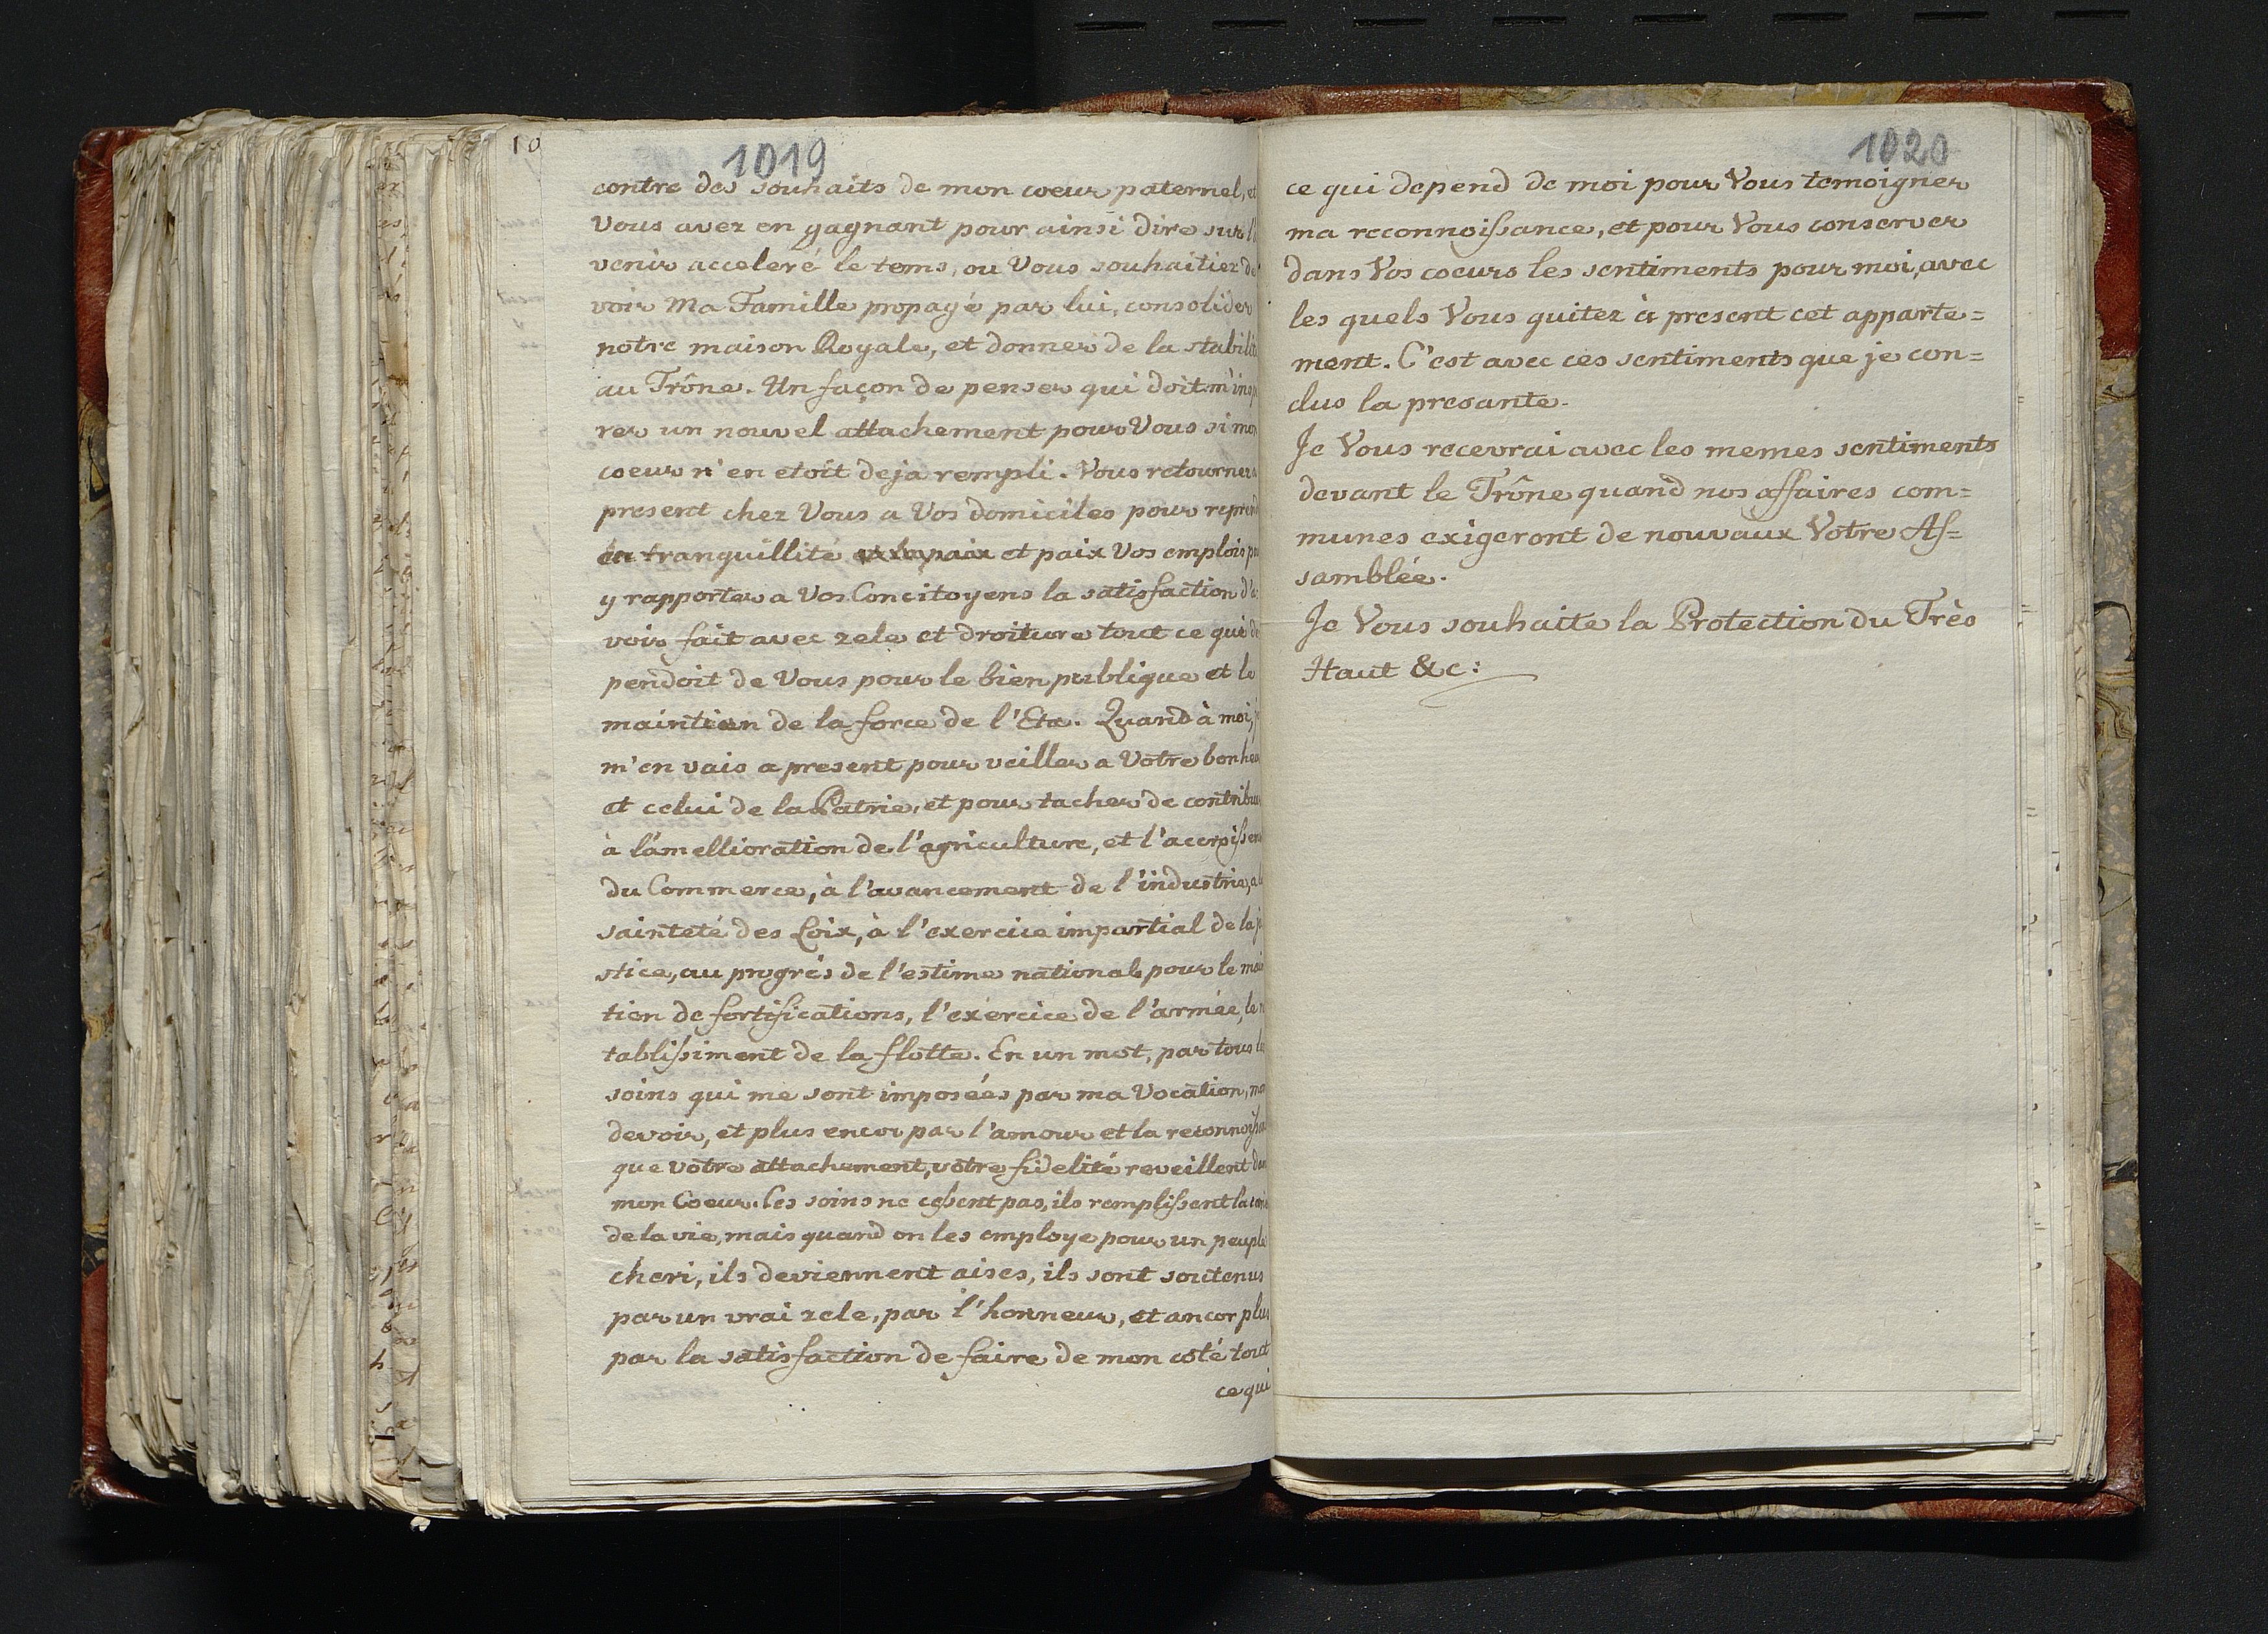 1019
contre des souhaits de mon coeur paternel, et
Vous avez en gagnant pour ainsi dire sur l'
venir acceleré le tems, ou Vous souhaitiez de
voir Ma Famille propagé par lui, consolider
notre maison Royale, et donner de la stabilité
au Trône. Un façon de penser qui doit m'insp
rer un nouvel attachement pour Vous si mon
coeur n'en etoit deja rempli. Vous retournez a
present chez Vous a Vos domiciles pour reprend
en tranquillité et la paix et paix Vos emplois po
y rapporter a Vos Concitoyens la satisfaction d'a:
voir fait avec zele et droiture tout ce qui de
pendoit de Vous pour le bien publique et le
maintien de la force de l'Eta. Quand à moi, j
m'en vais a present pour veiller a Votre bonheu
et celui de la Patrie, et pour tacher de contribuer
à l'amellioration de l'agriculture, et l'accroissem
du Commerce, à l'avancement de l'industrie, a l
sainteté des Loix, à l'exercice impartial de la ju
stice, au progrès de l'estime national pour le main
tien de fortifications, l'exércice de l'armée, le r
tablissiment de la flotte. En un mot, par tous le
soins qui me sont imposées par ma Vocation, mon
devoir, et plus encor par l'amour et la reconnoissa
que votre attachement, votre fidelité reveillent dan
mon Coeur. Ces soins ne cessent pas, ils remplissent la
de la vie, mais quand on les employe pour un peuple
cheri, ils deviennent aises, ils sont soutenus
par un vrai zele, par l'honneur, et ancor plus
par la satisfaction de faire de mon coté tout
ce qui
1020
ce qui depend de moi pour Vous temoigner
ma reconnoissance, et pour Vous conserver
dans Vos coeurs les sentiments pour moi, avec
les quels Vous quitez à present cet apparte=
ment. C'est avec ces sentiments que je con=
clus la presante.
Je Vous recevrai avec les memes sentiments
devant le Trône quand nos affaires com=
munes exigeront de nouvaux Votre As=
samblée.
Je Vous souhaite la Protection du Très
Haut &c: